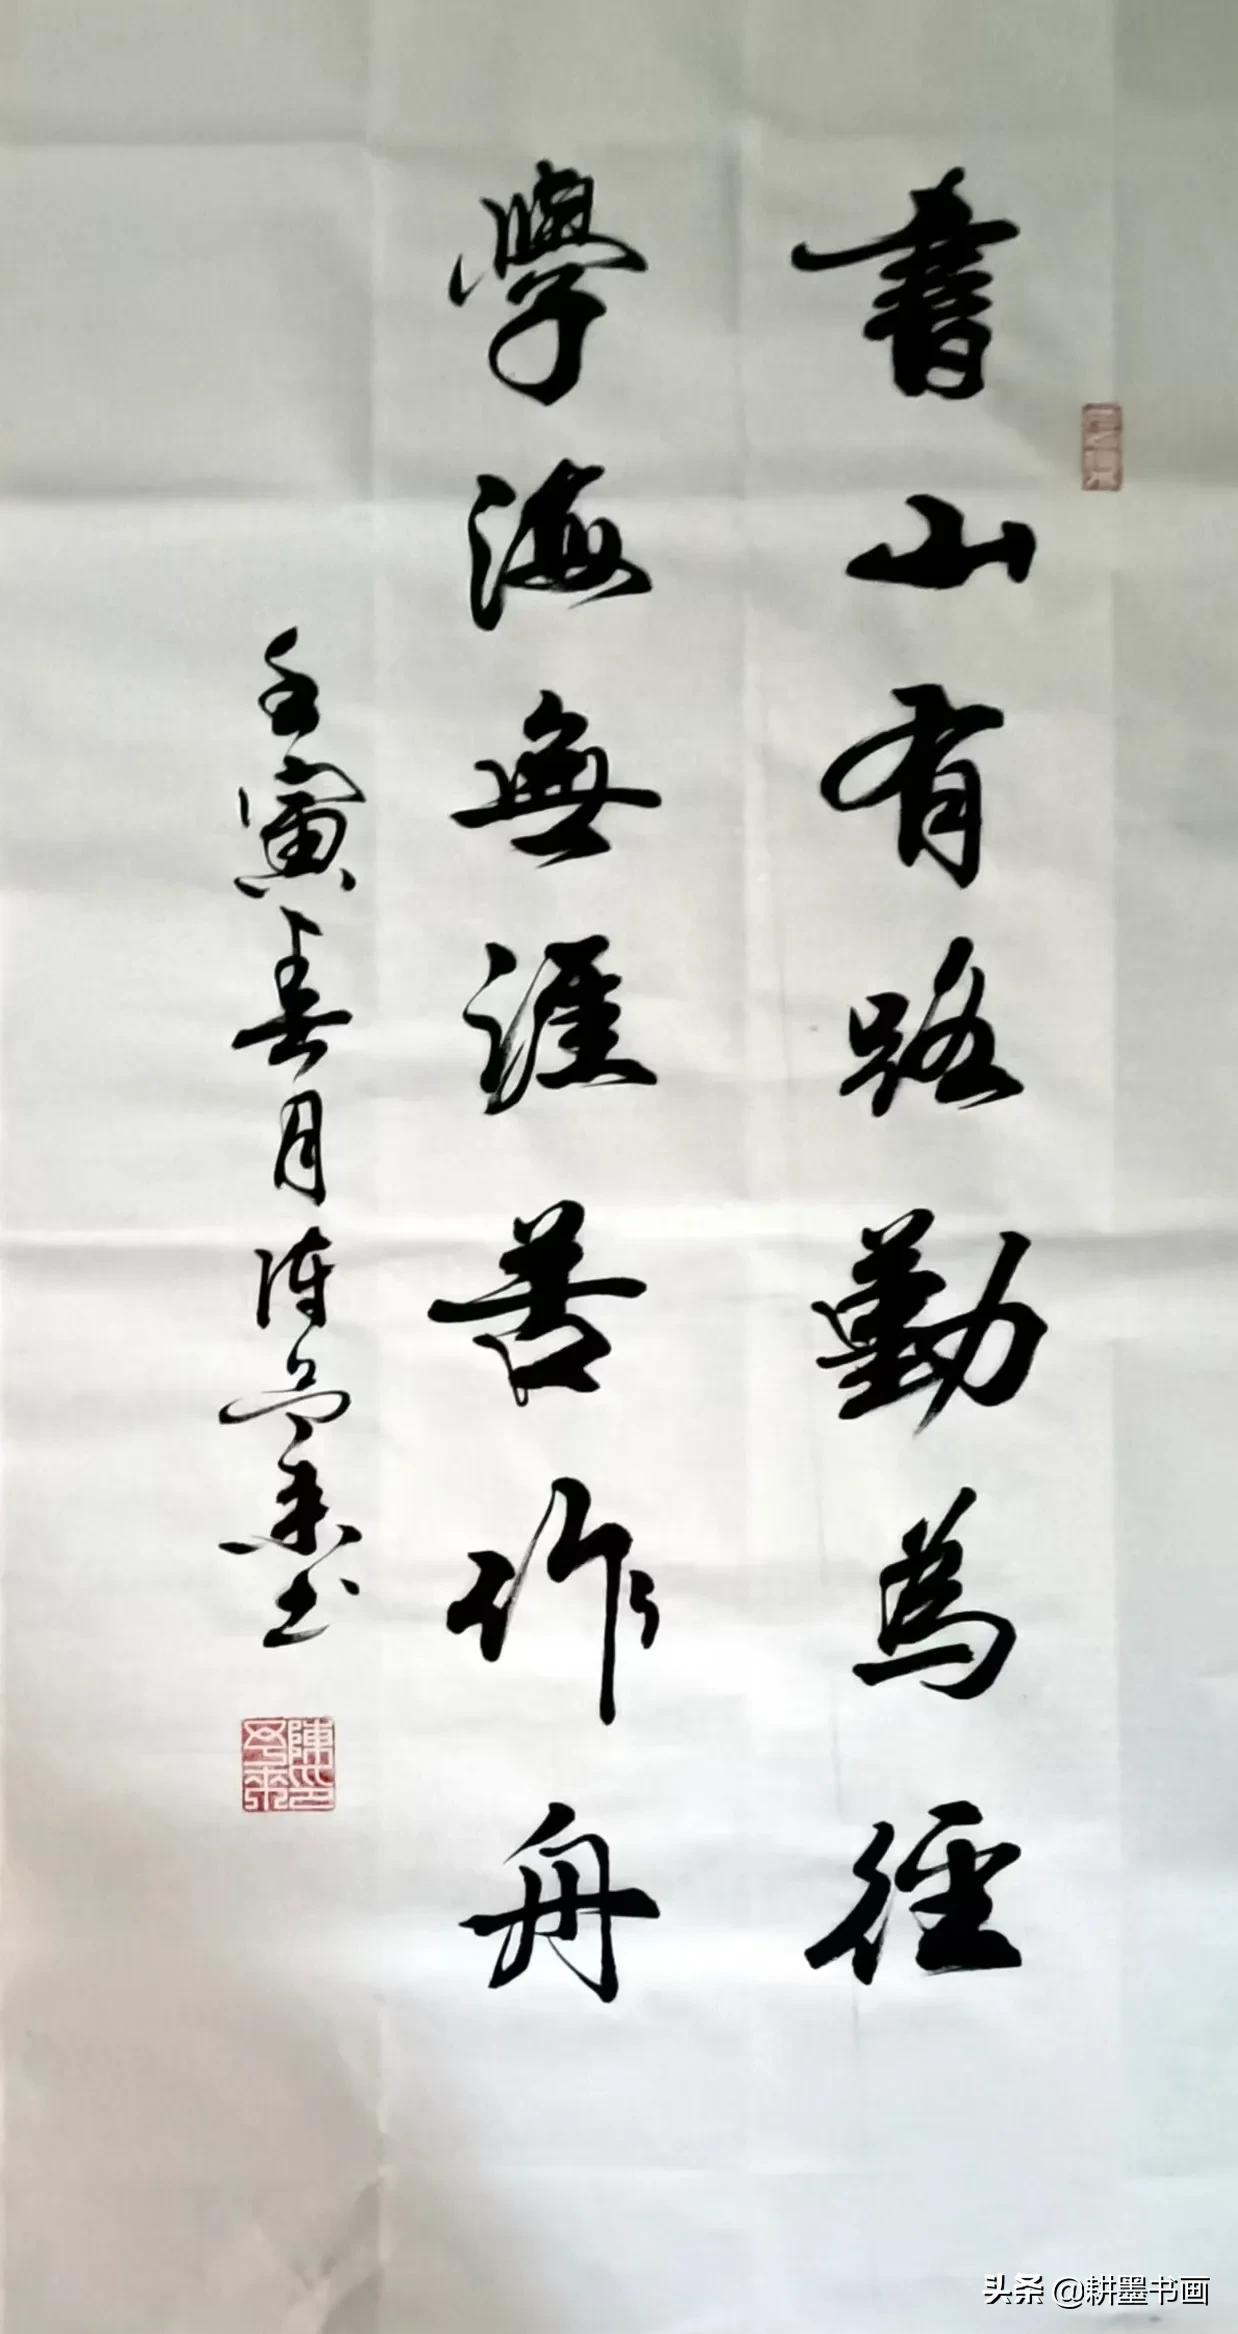 書山有路勤為徑
學海無涯苦作舟
壬寅春月陳
頭条 @耕墨书画